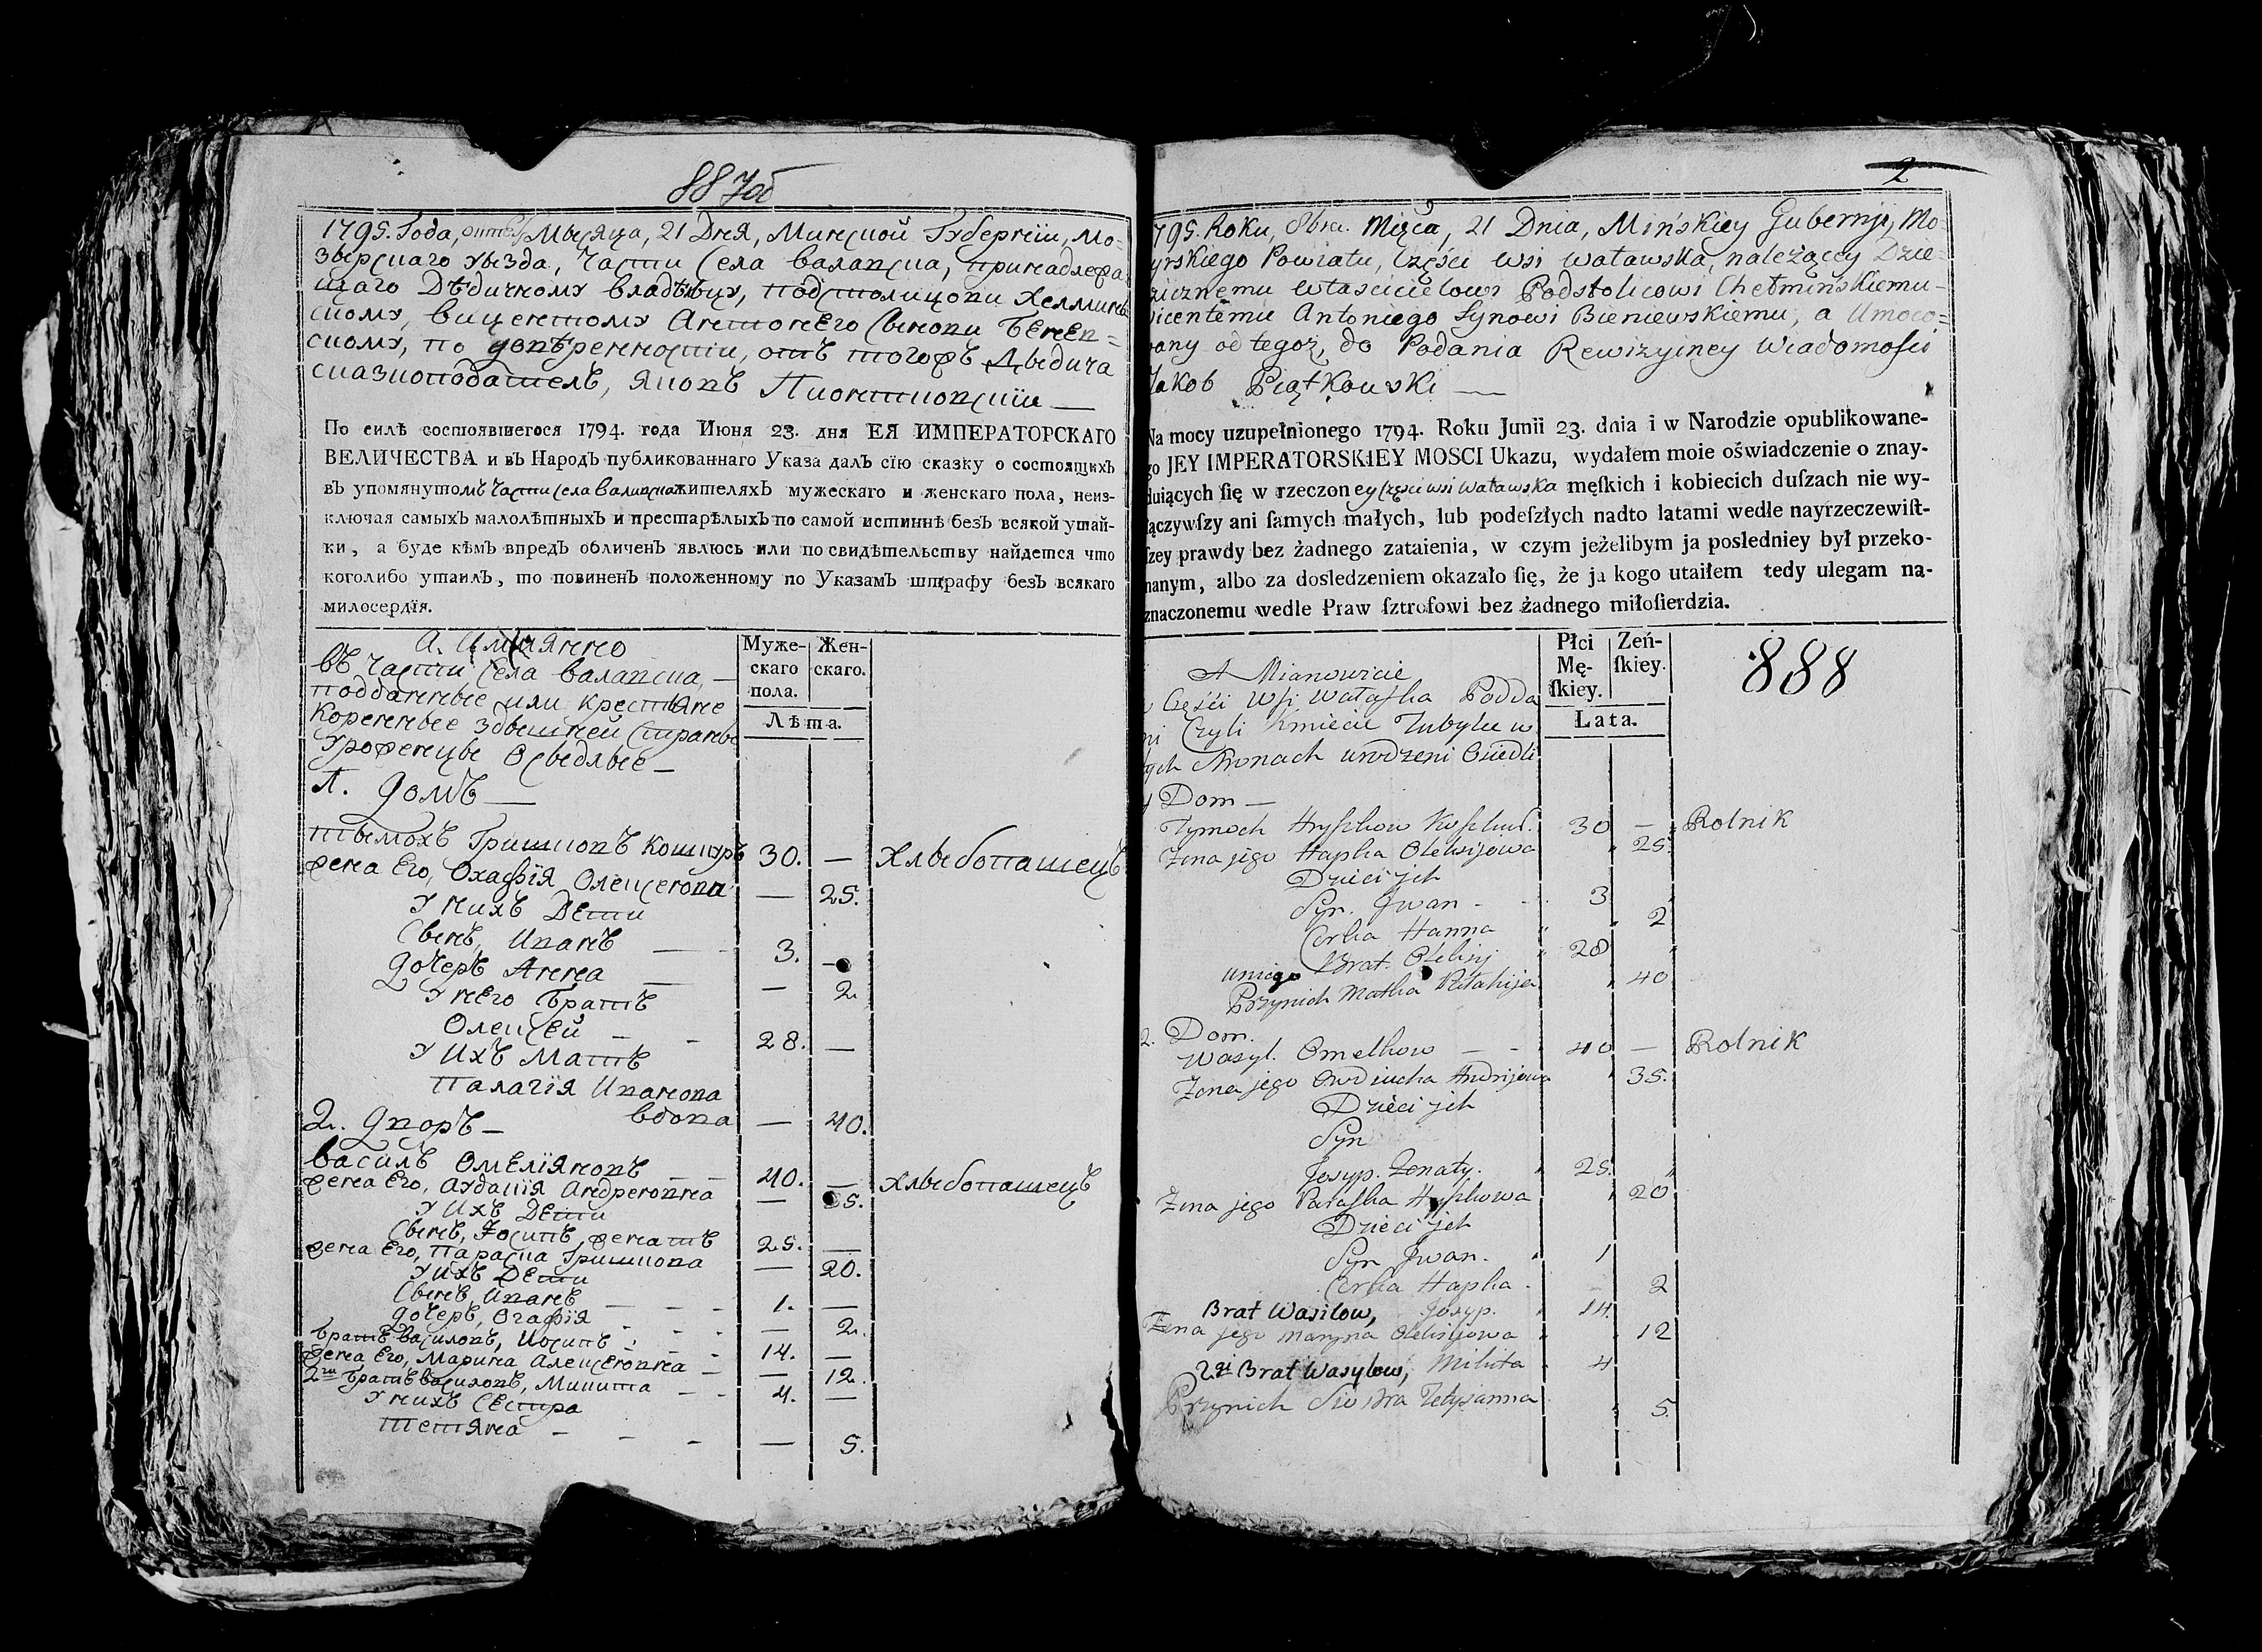 887об
1795. Года, Мѣсяца, 21 Дня, Минской Губерніи, Мо=
зырскаго уѣзда, Части Села Валавска, принадлежа
щаго Дѣдичному владѣльцу, подстолицови Хелминь
скому, Виценттому Антонего Сынови Бенев=
скому, по довѣренности, отъ тогожъ Дѣдича
сказкоподатель, Яковъ Пионтковскіи —
По силѣ состоявшегося 1794. года Іюня 23. дня ЕЯ ИМПЕРАТОРСКАГО
ВЕЛИЧЕСТВА и въ НародЪ публикованнаго Указа далЪ сїю сказку о состоящихЪ
въ упомянутомъ Части Села Валавска жителяхЪ мужескаго и женскаго пола, неиз-
ключая самыхЪ малолѣтныхЪ и престарѣлыхЪ по самой истиннѣ безЪ всякой утай-
ки, а буде кѣмЪ впредЪ обличенЪ явлюсь или по свидѣтельству найдется что
коголибо утаилЪ, то повиненЪ положенному по УказамЪ штрафу безЪ всякаго
милосердїя.
А. Имянно
Въ части Села Валавска, —
подданные или крестьяне
Коренные здѣшней Страны
Уроженцы Осѣдлые —
Муже-
скаго
пола.
Жен-
скаго.
Лѣта.
1. Домъ —
Тымохъ Гришковъ Кошкуръ 30. — Хлѣбопашецъ
жена Его, Охафія Олексеевна — 25.
У нихъ Дети
Сынъ, Иванъ — 3. —
Дочеръ Анна — — 2
У него Братъ
Олексей — - 28. —
У Ихъ Матъ
Палагія Иванова
вдова — 40.
2. Дворъ —
Василъ Омеліяновъ — — 40. — хлѣбопашецъ
жена Его, Аудакія Андреевна — 35.
У Ихъ Дети
Сынъ, Іосипъ, женатъ 25. —
жена Его, Параска Гришкова — 20.
У Ихъ Дети
Сынъ Иванъ — - - 1. —
Дочеръ, Огафія - - - — 2.
Братъ Василовъ, Иосипъ - - 14. —
жена Его, Марина Алексеевна — — 12.
2й Братъ Василовъ, Микита — - 4. —
У нихъ Сестра
Тетяна - - - — 5.
2
795. Roku, 8bra. Mięca, 21 Dnia, Mińskiey Gubernji, Mo=
yrskiego Powiatu, Części wsi Waławska, należącey Dzie=
zicznemu Włascicielowi Podstolicowi Chełmińskiemu-
icentemu Antoniego Synowi Bieniewskiemu, a Umoco=
wany od tegoż, do Podania Rewizyiney Wiadomości
Jakob Piątkowski —
Na mocy uzupełnionego 1794. Roku Junii 23. dnia i w Narodzie opublikowane-
go JEY IMPERATORSKIEY MOSCI Ukazu, wydałem moie oświadczenie o znay-
duiących ſię w rzeczoney części wsi Waławska męſkich i kobiecich duſzach nie wy-
łączywſzy ani ſamych małych, lub podeſzłych nadto latami wedle nayrzeczewiſt-
ſzey prawdy bez żadnego zataienia, w czym jeżelibym ja posledniey był przeko-
nanym, albo za dosledzeniem okazało ſię, że ja kogo utaiłem tedy ulegam na-
znaczonemu wedle Praw ſztrofowi bez żadnego miłoſierdzia.
A Mianowicie
Części Wsi Wałaska Podda
ni Czyli kmiecie Tubylce w
tych Stronach urodzeni Osiedli
Płci
Mę-
ſkiey.
Zeń-
ſkiey.
Lata.
888
Dom —
Tymoch Hryszkow Koszkur. 30 — Rolnik
Żona jego Hapka Oleksijowa 25.
Dzieci jch
Syn. Jwan - 3
Corka Hanna 2
u niego Brat. Oleksij 28
Przynich Matka Pałahija 40
2. Dom.
Wasyl. Omelkow — - 40 — Rolnik
Zona jego Owdiucha Andrijowa 35.
Dzieci jch
Syn
Josyp. Żonaty. 25.
Żona jego Paraska Hryszkowa 20
Dzieci jch
Syn Jwan. 1
Corka Hapka. 2
Brat Wasilow, Josyp. 14.
Żona jego Maryna Oleksijowa 12
2gi Brat Wasylow, Mikita 4
Przynich Siostra Tetyanna 5.